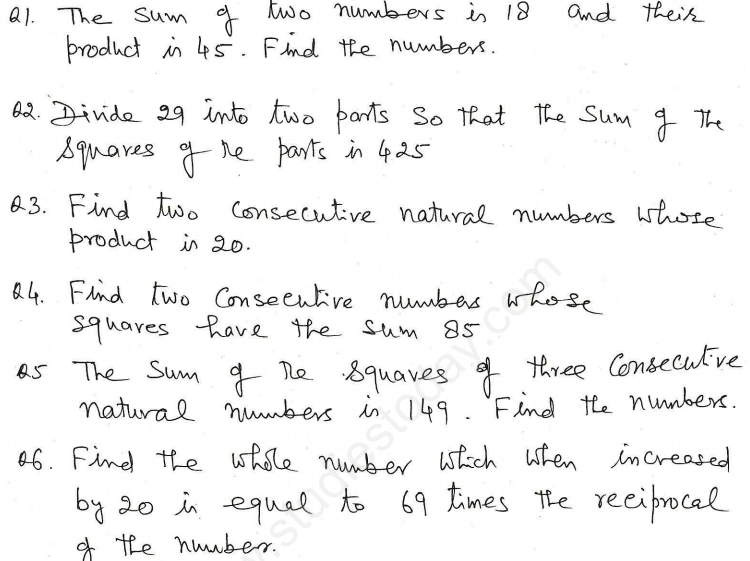 Q1. The sum of two numbers is 18 and their
product is 45. Find the numbers.
Q2. Divide 29 into two parts so that the sum of the
squares of the parts is 425
Q3. Find two consecutive natural numbers whose
product is 20.
Q4. Find two consecutive numbers whose
squares have the sum 85
Q5 The sum of the squares of three consecutive
natural numbers is 149. Find the numbers.
Q6. Find the whole number which when increased
by 20 is equal to 69 times the reciprocal
of the number.
.studiestoday.com